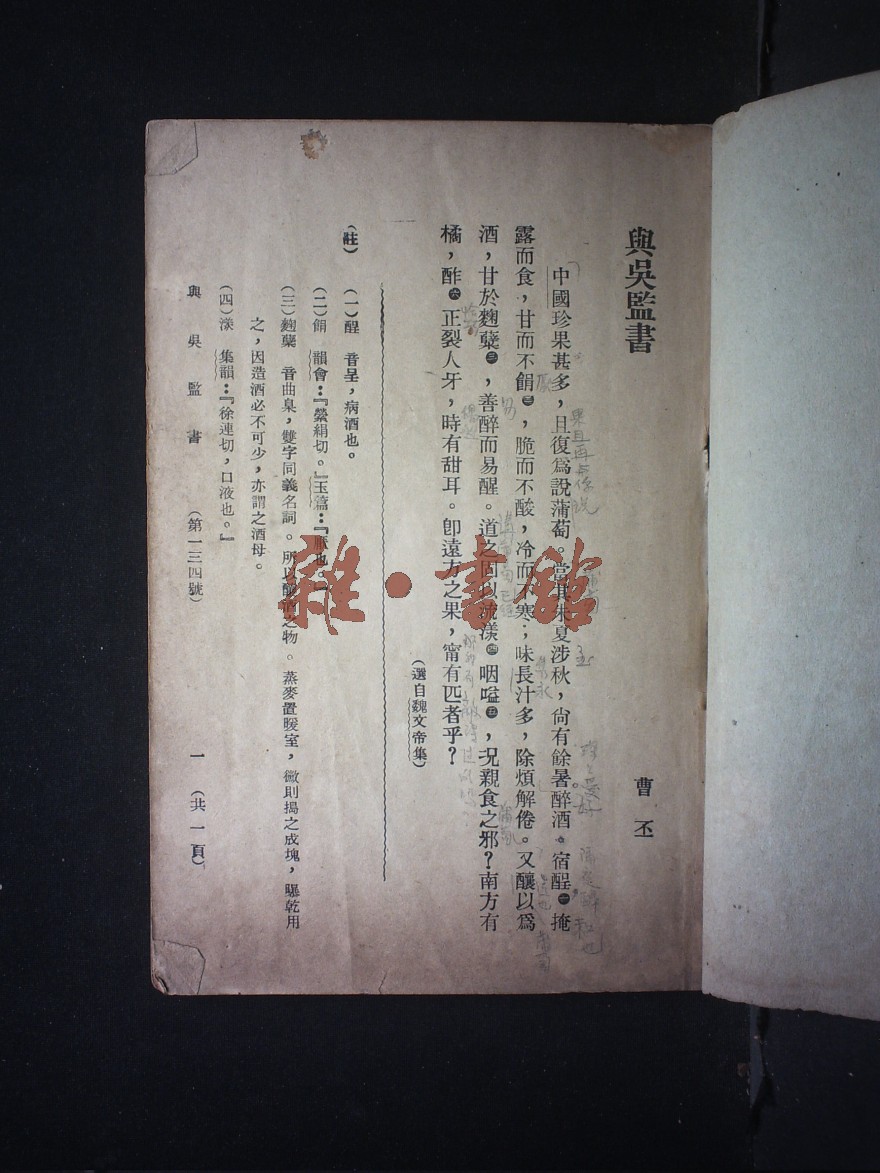 與吳監書
曹丕
中國珍果甚多，且復爲說蒲萄。當其朱夏涉秋，尙有餘暑醉酒。宿酲㊀掩
露而食，甘而不䬼㊁，脆而不酸，冷而不寒；味長汁多，除煩解倦。又釀以爲
酒，甘於麴櫱㊂，善醉而易醒。道之固以流漾㊃咽嗌㊄，況親食之邪？南方有
橘，酢㊅正裂人牙，時有甜耳。卽遠方之果，甯有匹者乎？
（選自魏文帝集）
（註）（一）酲　音呈，病酒也。
（二）䬼　韻會：『縈絹切。』玉篇：『厭也。』
（三）麴櫱　音曲臬，雙字同義名詞。所以釀酒之物。蒸麥置暖室，黴則揭之成塊，曝乾用
之，因造酒必不可少，亦謂之酒母。
（四）漾　集韻：『徐連切，口液也。』
與吳監書　（第一三四號）　一　（共一頁）
雜·書館